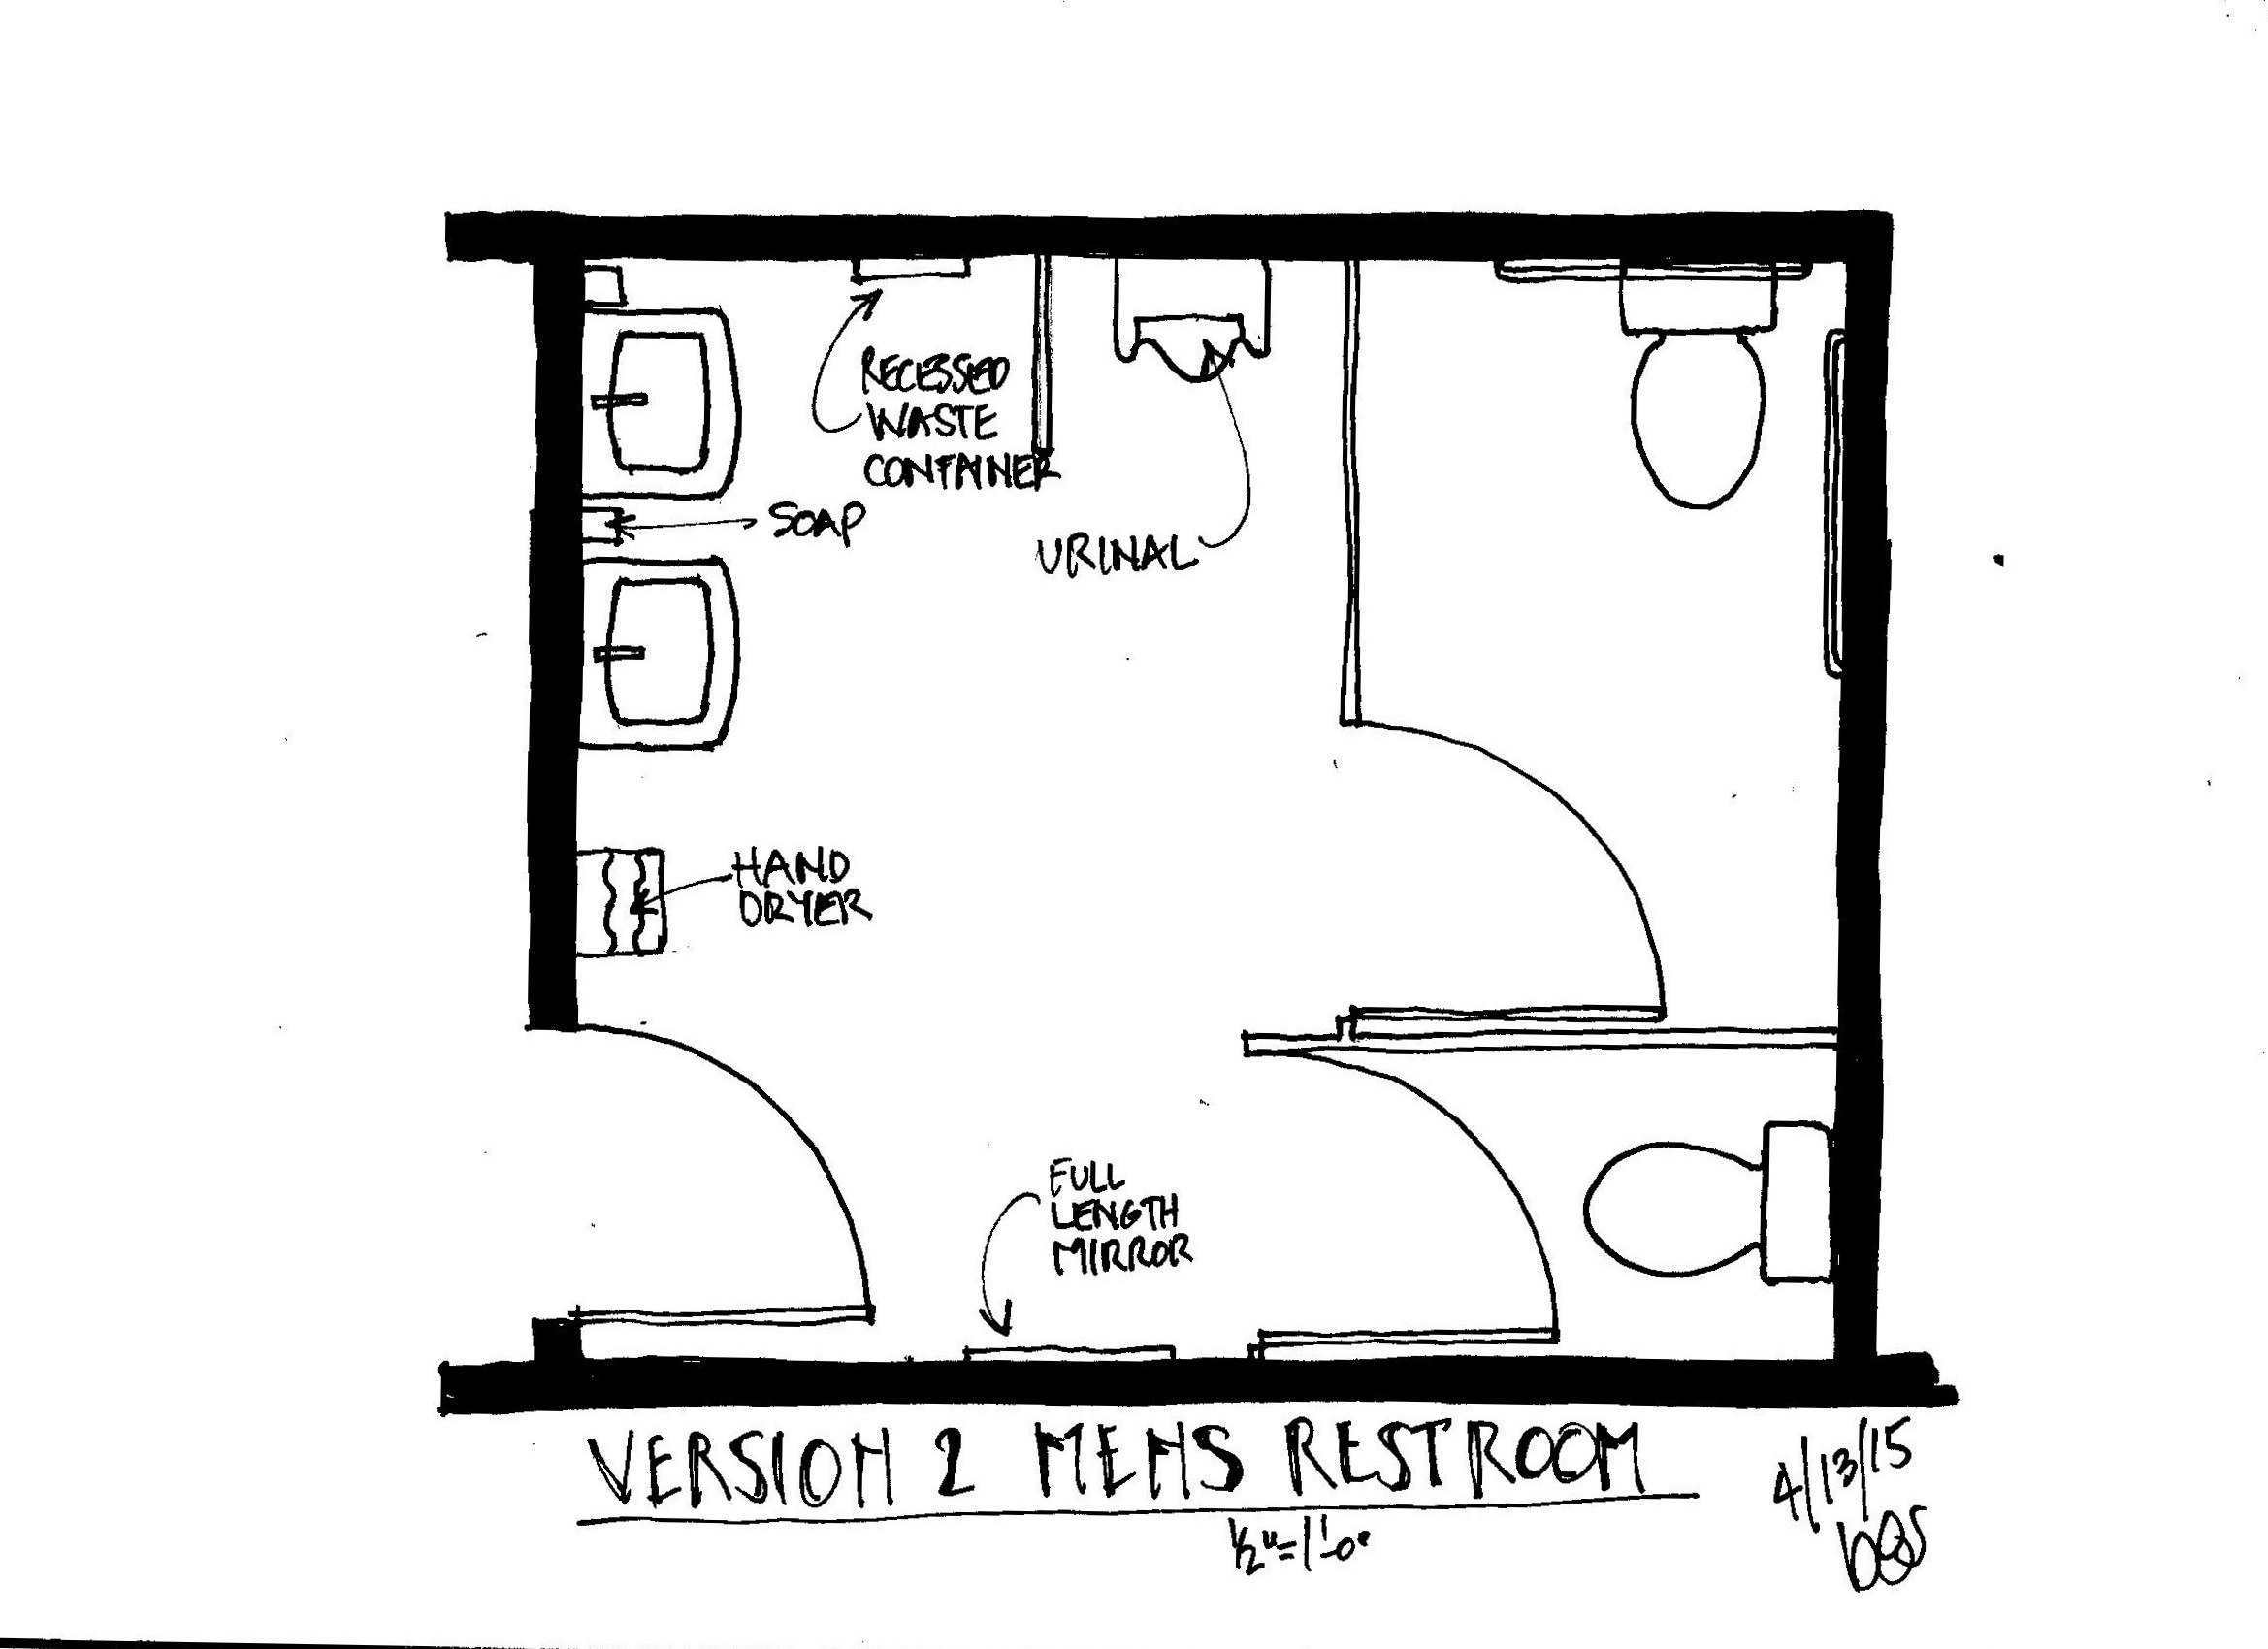 RECESSED
WASTE
CONTAINER
SOAP
URINAL
HAND
DRYER
FULL
LENGTH
MIRROR
VERSION 2 MENS RESTROOM
1/2"=1'-0"
4/13/15